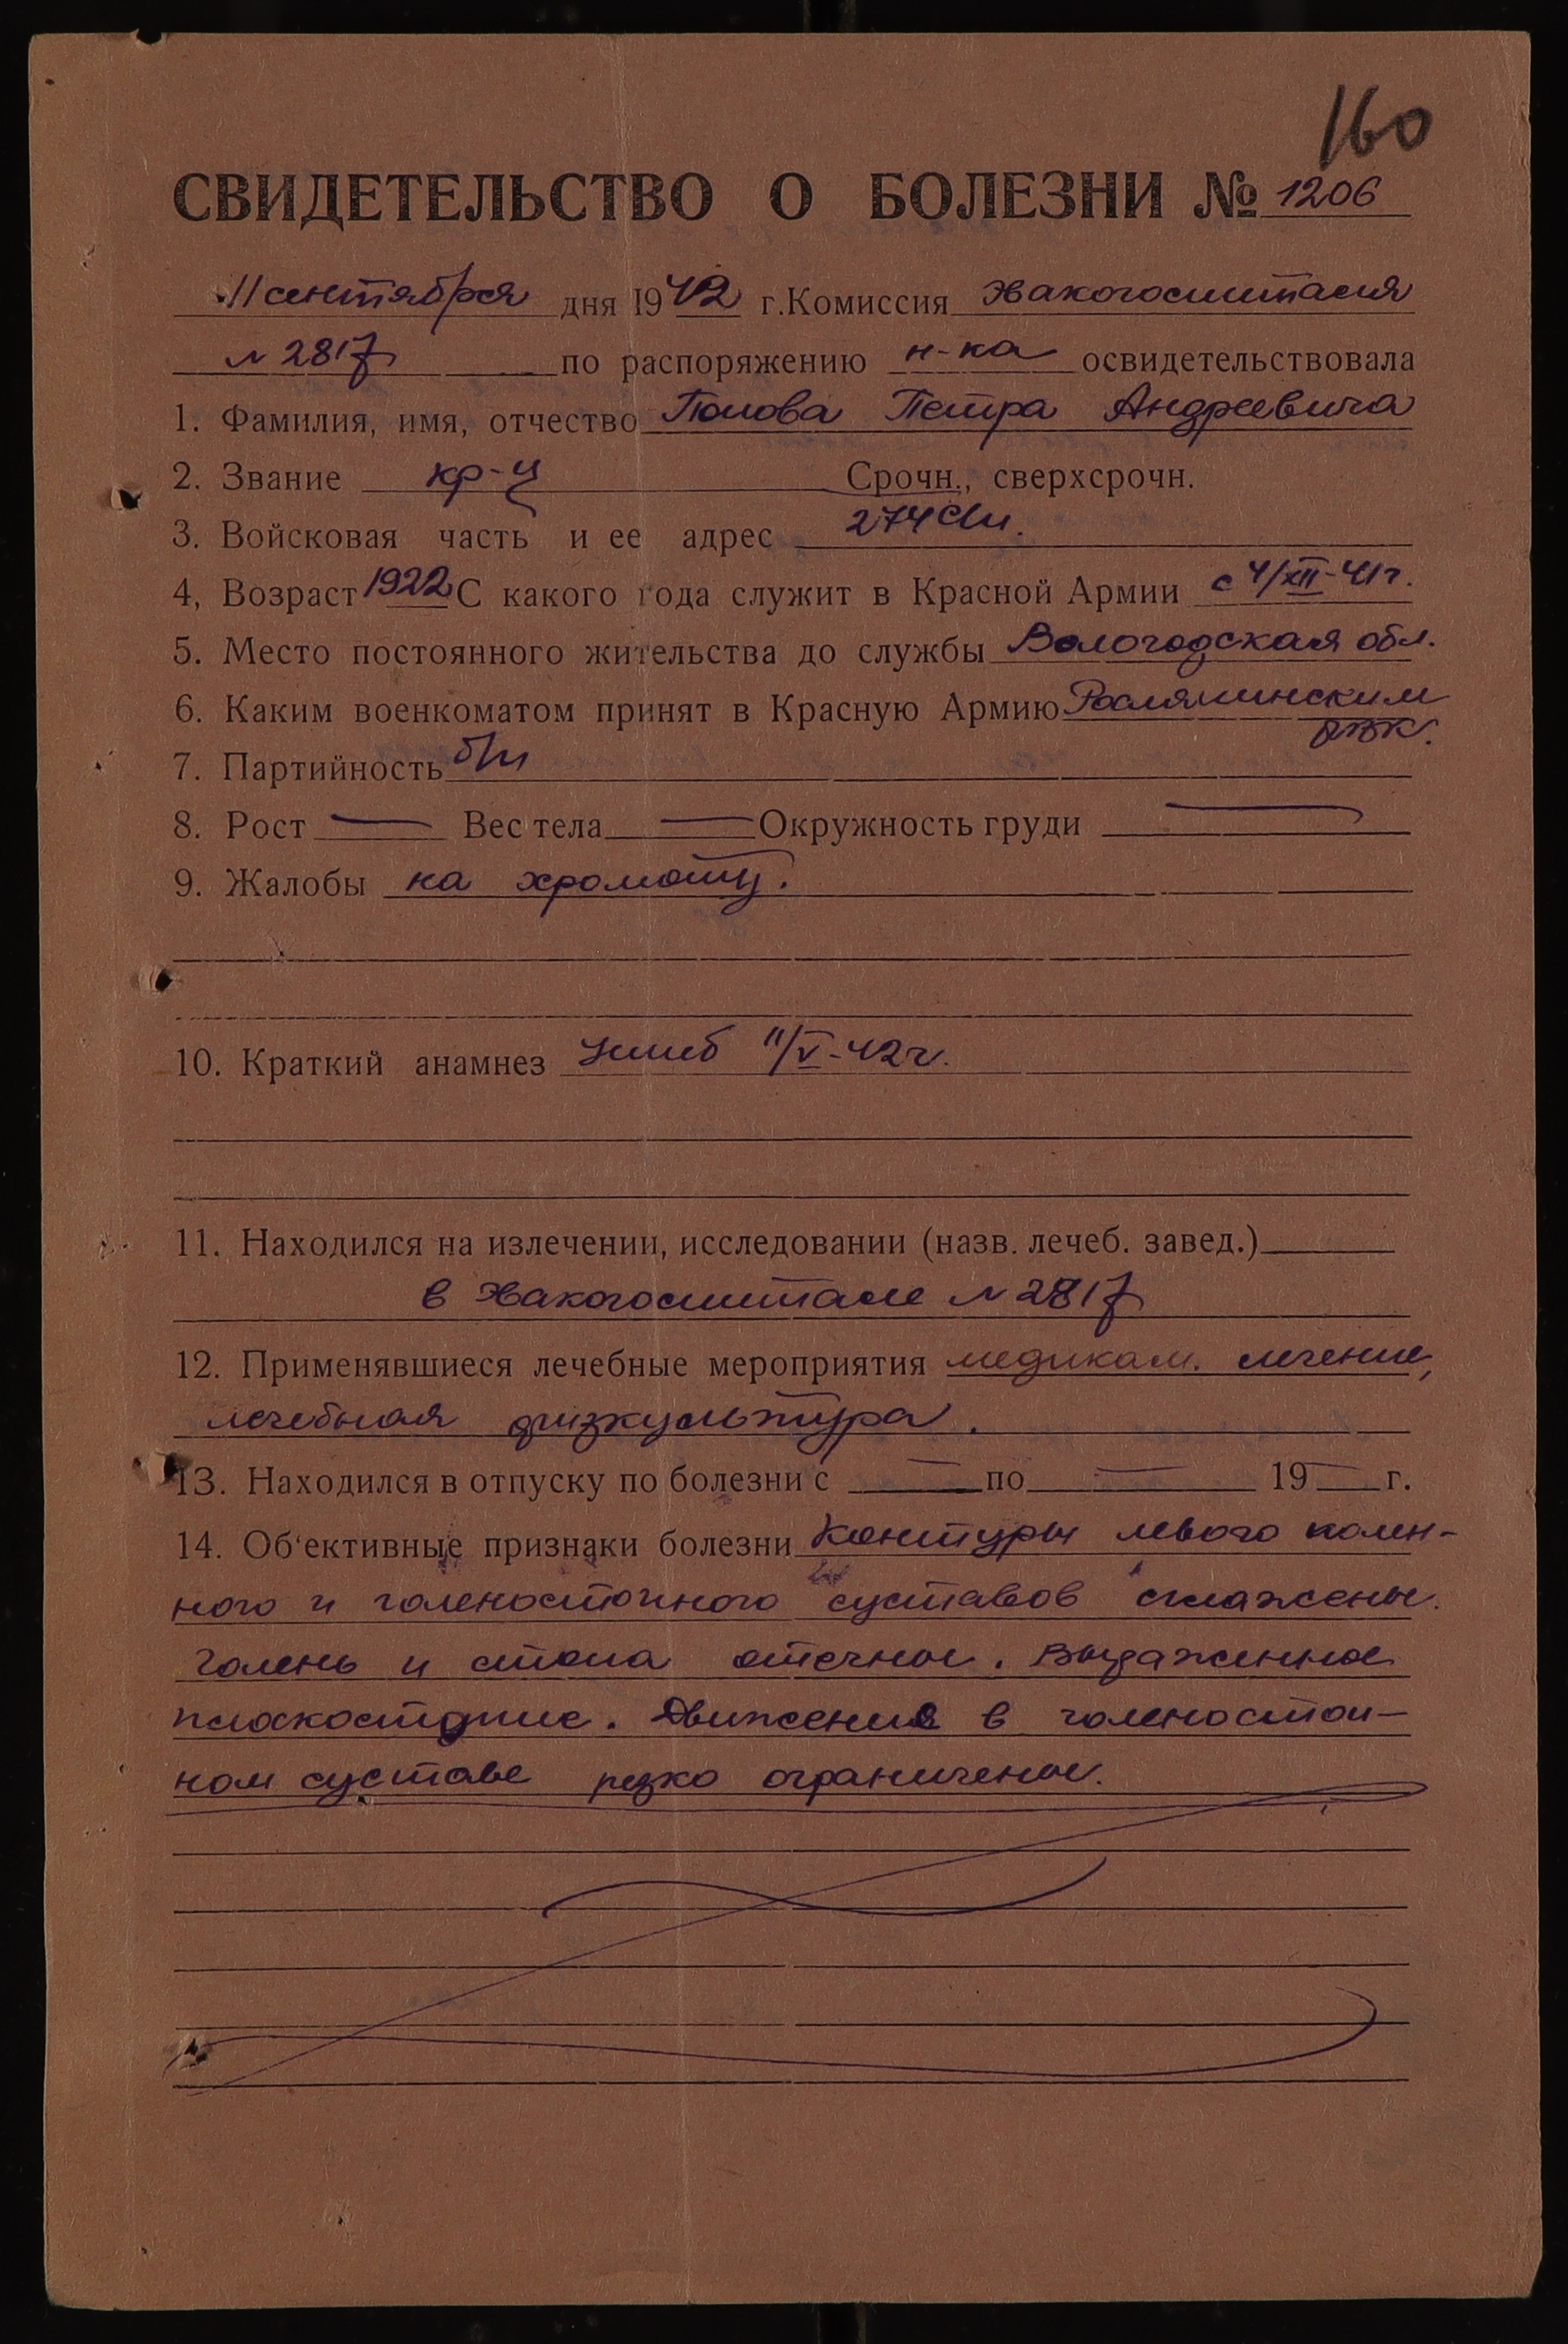 160
СВИДЕТЕЛЬСТВО О БОЛЕЗНИ № 1206
11 сентября дня 1942 г. Комиссия Эвакогоспиталя
№ 2817 по распоряжению н-ка освидетельствовала
1. Фамилия, имя, отчество Попова Петра Андреевича
2. Звание кр-ц Срочн., сверхсрочн.
3. Войсковая часть и ее адрес 274 сп.
4, Возраст 1922 С какого года служит в Красной Армии с 4/XII-41г.
5. Место постоянного жительства до службы Вологодская обл.
6. Каким военкоматом принят в Красную Армию Рослятинским
РВК.
7. Партийность б/п
8. Рост — Вес тела — Окружность груди —
9. Жалобы на хромоту.
10. Краткий анамнез Ушиб 11/V-42г.
11. Находился на излечении, исследовании (назв. лечеб. завед.)
в Эвакогоспитале № 2817
12. Применявшиеся лечебные мероприятия медикам. лечение,
лечебная физкультура.
13. Находился в отпуску по болезни с — по — 19 — г.
14. Об'ективные признаки болезни Контуры левого колен-
ного и голеностопного суставов сглажены.
Голень и стопа отечны. Выраженное
плоскостопие. Движения в голеностоп-
ном суставе резко ограничены.